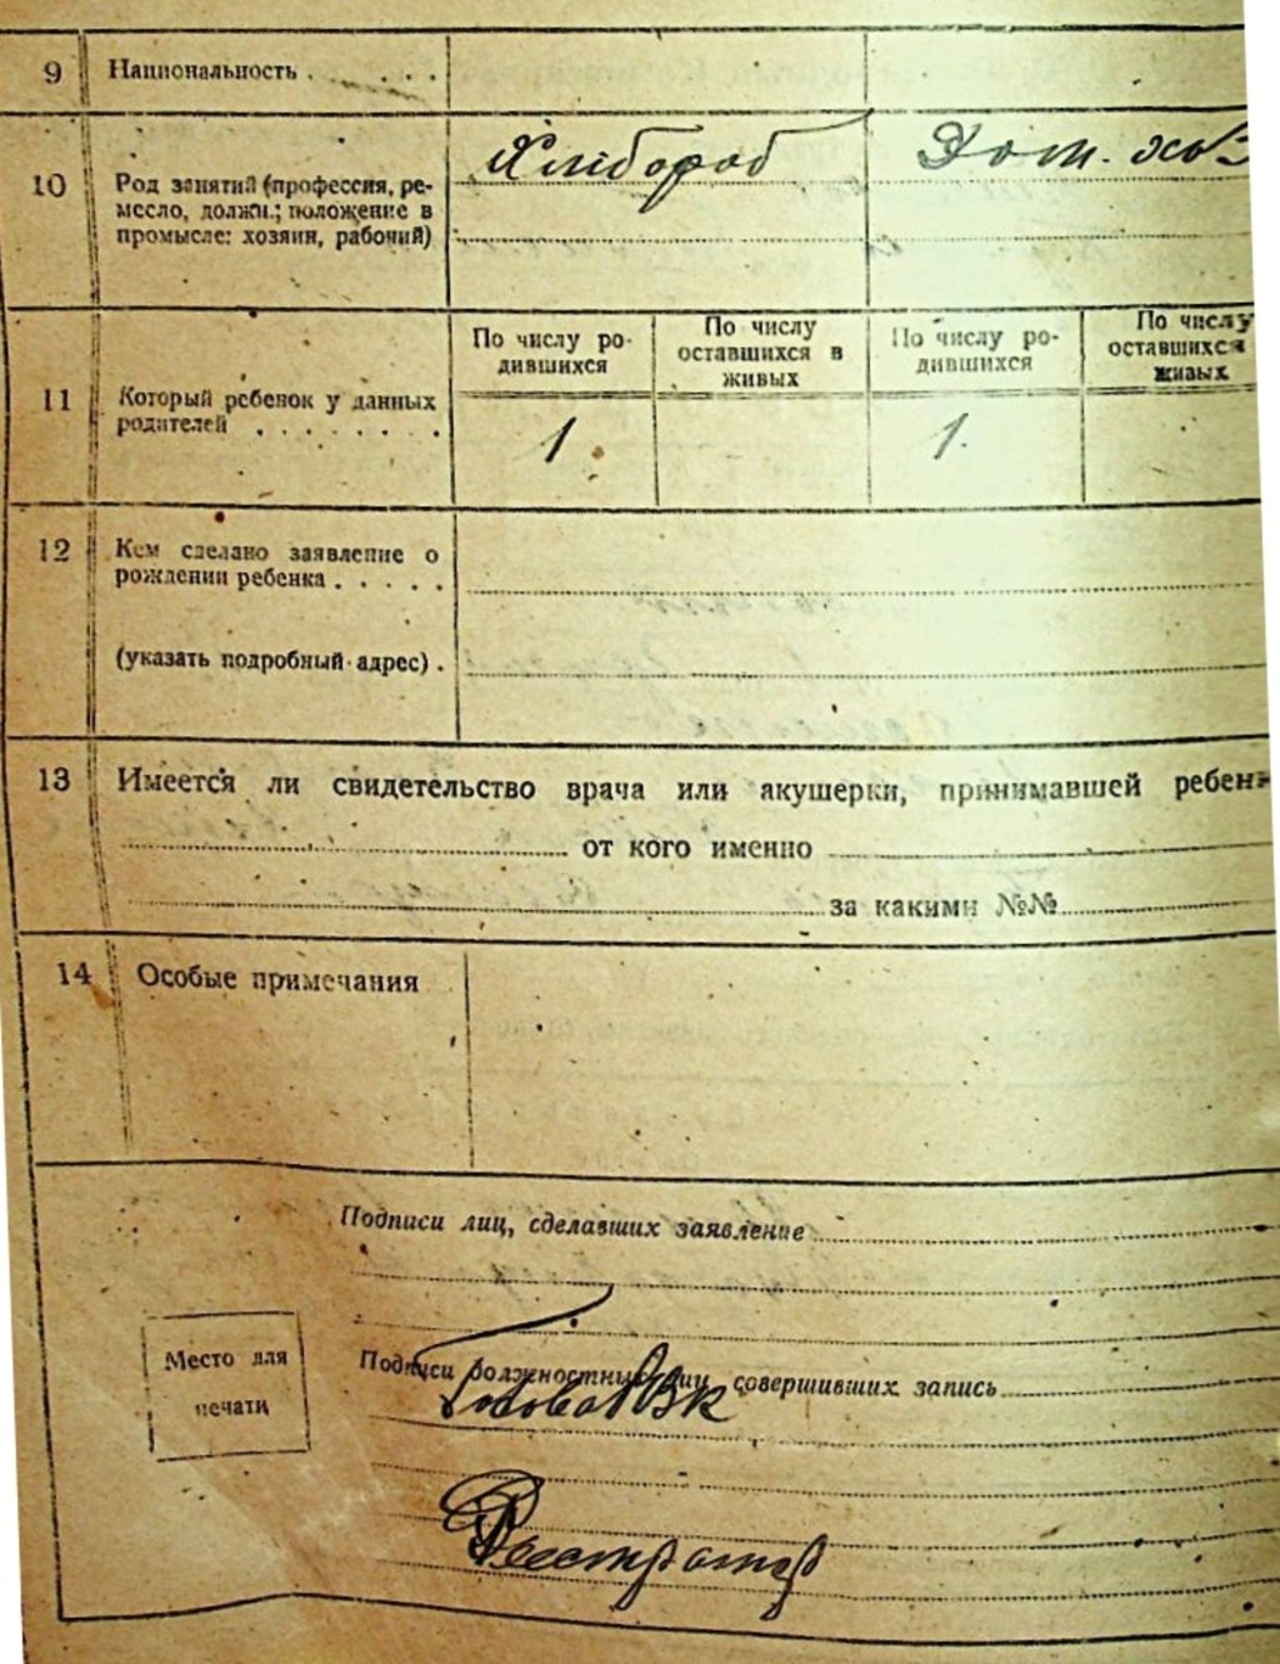 9 Национальность . . . . .
Хлібороб Дом. хоз
10 Род занятий (профессия, ре-
месло, должн.; положение в
промысле: хозяин, рабочий)
По числу ро-
дившихся
По числу
оставшихся в
живых
По числу ро-
дившихся
По числу
оставшихся
живых
11 Который ребенок у данных
родителей . . . . . . . .
1. 1.
12 Кем сделано заявление о
рождении ребенка . . . . .
(указать подробный адрес) .
13 Имеется ли свидетельство врача или акушерки, принимавшей ребен
от кого именно
за какими №№
14 Особые примечания
Подписи лиц, сделавших заявление
Место для
печати
Подписи должностных лиц совершивших запись
Голова ВК
Реестратор